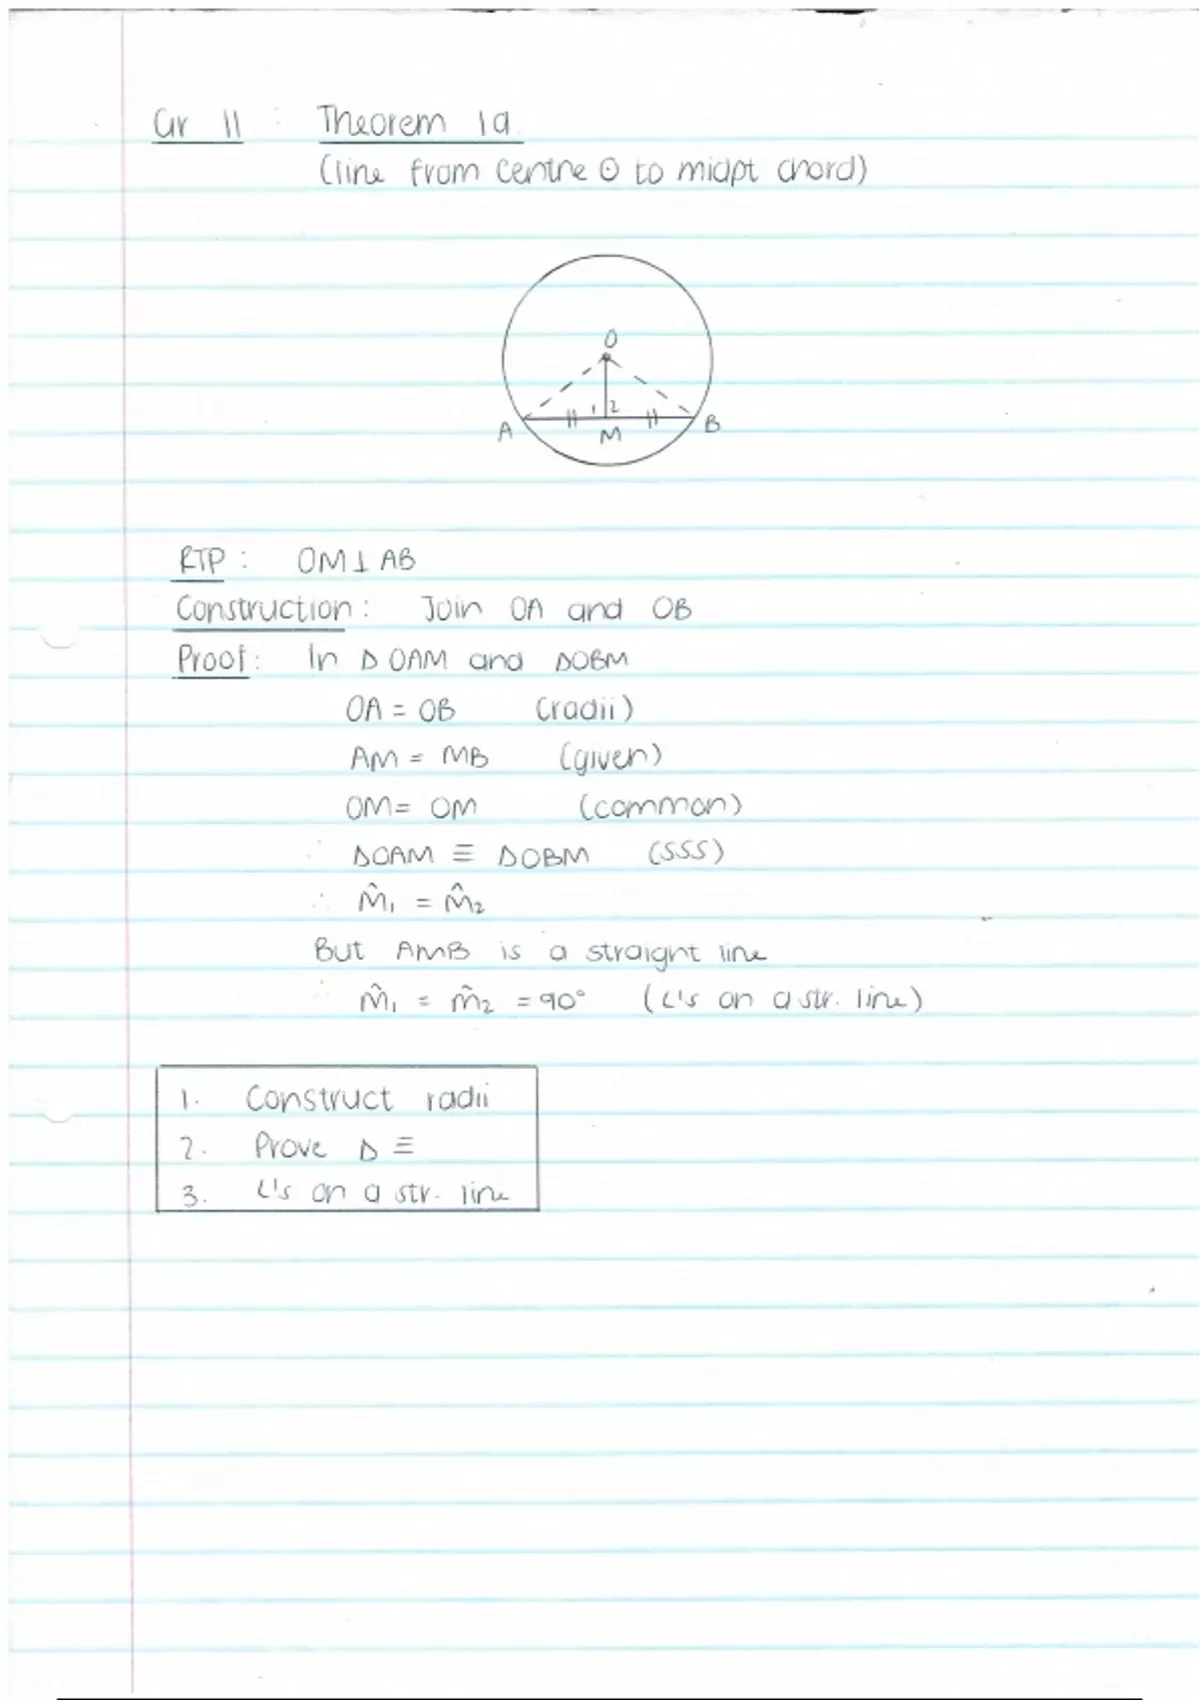 Gr 11 : Theorem 1a
(line from centre ⊙ to midpt chord)
O
1 2
A M B
RTP : OM ⊥ AB
Construction : Join OA and OB
Proof : In △OAM and △OBM
OA = OB (radii)
AM = MB (given)
OM = OM (common)
∴ △OAM ≡ △OBM (SSS)
∴ M̂₁ = M̂₂
But AMB is a straight line
∴ M̂₁ = M̂₂ = 90° (∠'s on a str. line)
1. Construct radii
2. Prove △ ≡
3. ∠'s on a str. line